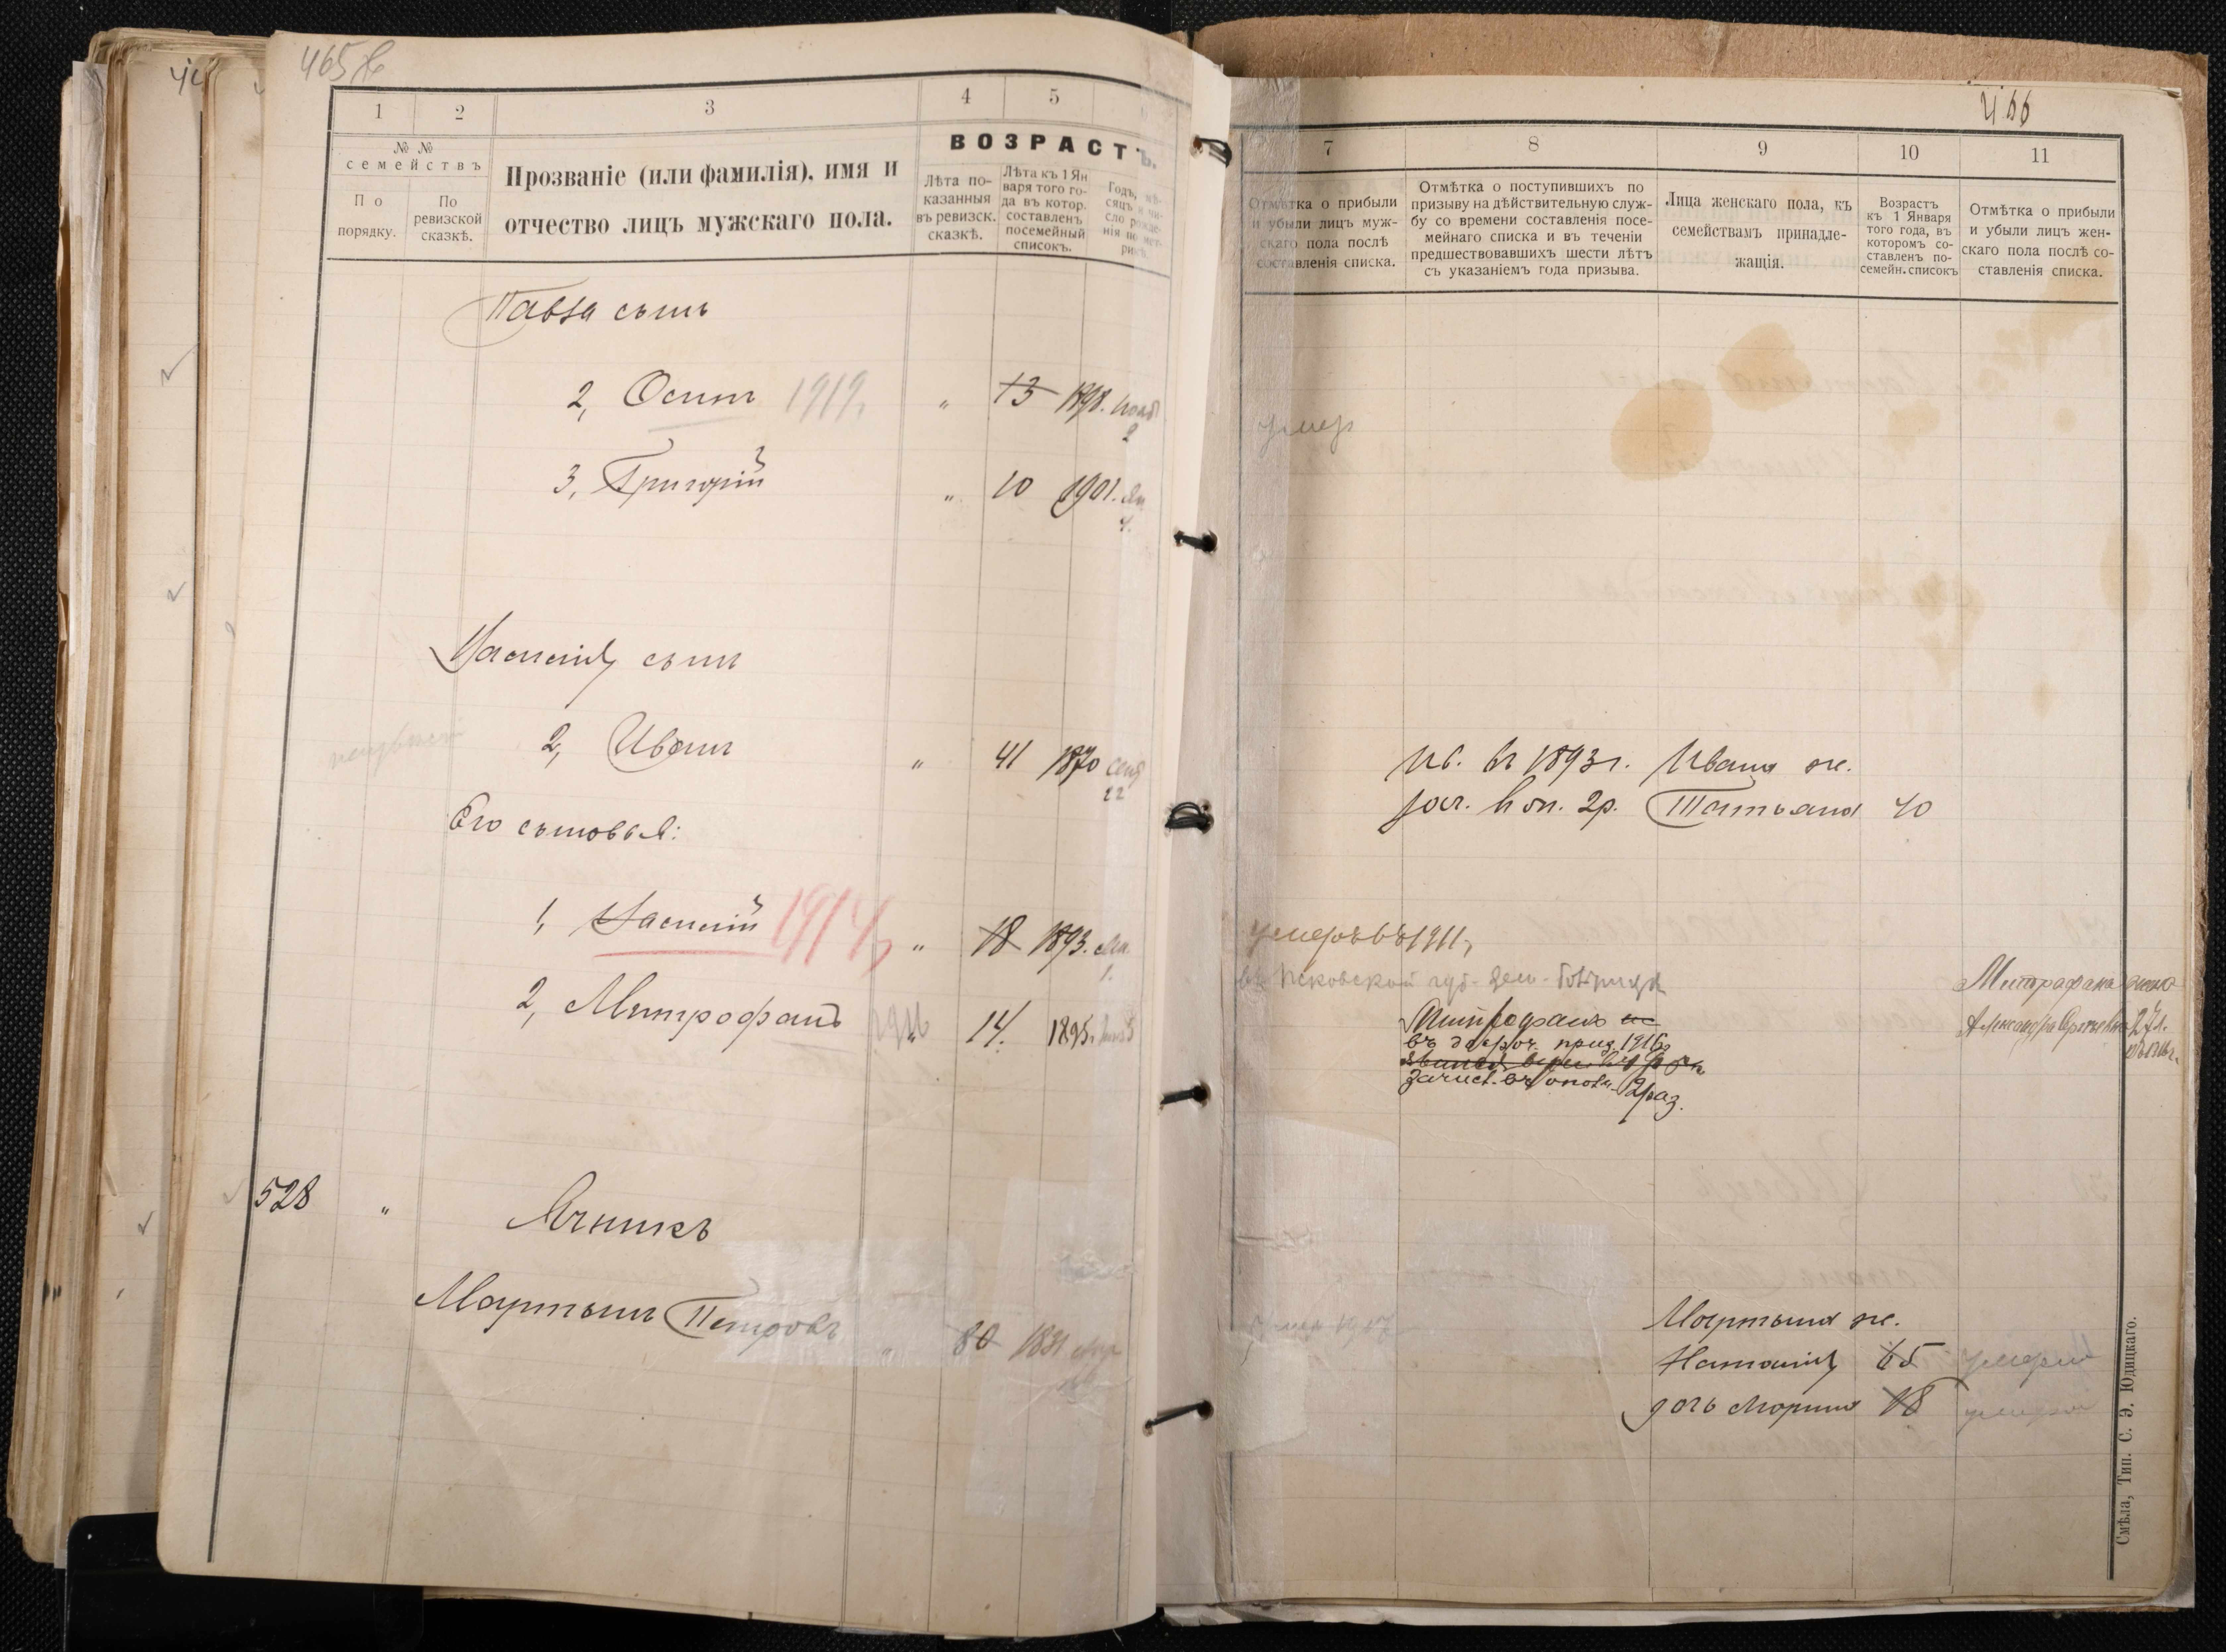 465
1
2
3
4
5
№ №
семействъ
По
порядку.
По
ревизской
сказкѣ.
Прозваніе (или фамилія), имя и
отчество лицъ мужскаго пола.
ВОЗРАСТЪ.
Лѣта по-
казанныя
въ ревизск.
сказкѣ.
Лѣта къ 1 Ян
варя того го-
да въ котор.
составленъ
посемейный
списокъ.
Годъ, мѣ-
сяцъ и чи-
сло рожде-
нія по мет-
рикѣ.
Павла сынъ
2, Осипъ 1919 " 13 1898. Нояб
2
3, Григорій " 10 1901. Ян
4.
Василія сынъ
2, Иванъ " 41 1870 Сент
22
Его сыновья:
1, Василій 1914 " 18 1893. 
1.
2, Митрофанъ 14. 1895.
528 "
Ячникъ
Мартынъ Петровъ " 80 1831
466
7
8
9
10
11
Отмѣтка о прибыли
и убыли лицъ муж-
скаго пола послѣ
составленія списка.
Отмѣтка о поступившихъ по
призыву на дѣйствительную служ-
бу со времени составленія посе-
мейнаго списка и въ теченіи
предшествовавшихъ шести лѣтъ
съ указаніемъ года призыва.
Лица женскаго пола, къ
семействамъ принадле-
жащія.
Возрастъ
къ 1 Января
того года, въ
которомъ со-
ставленъ по-
семейн. списокъ
Отмѣтка о прибыли
и убыли лицъ жен-
скаго пола послѣ со-
ставленія списка.
умер
Ив. въ 1893 г. Ивана ж.
зач. в оп. 2 р. Татьяна 40
умеръ въ 1911 г
въ Псковской губ.
Митрофана жена
Александра 27 л.
Митрофанъ
въ досроч. приз. 1916 г
зачисл. въ ополч. 2 раз.
Мартына ж.
Наталія 65 умерла
дочь Марина 18 умерла
Смѣла, Тип. С. Э. Юдицкаго.